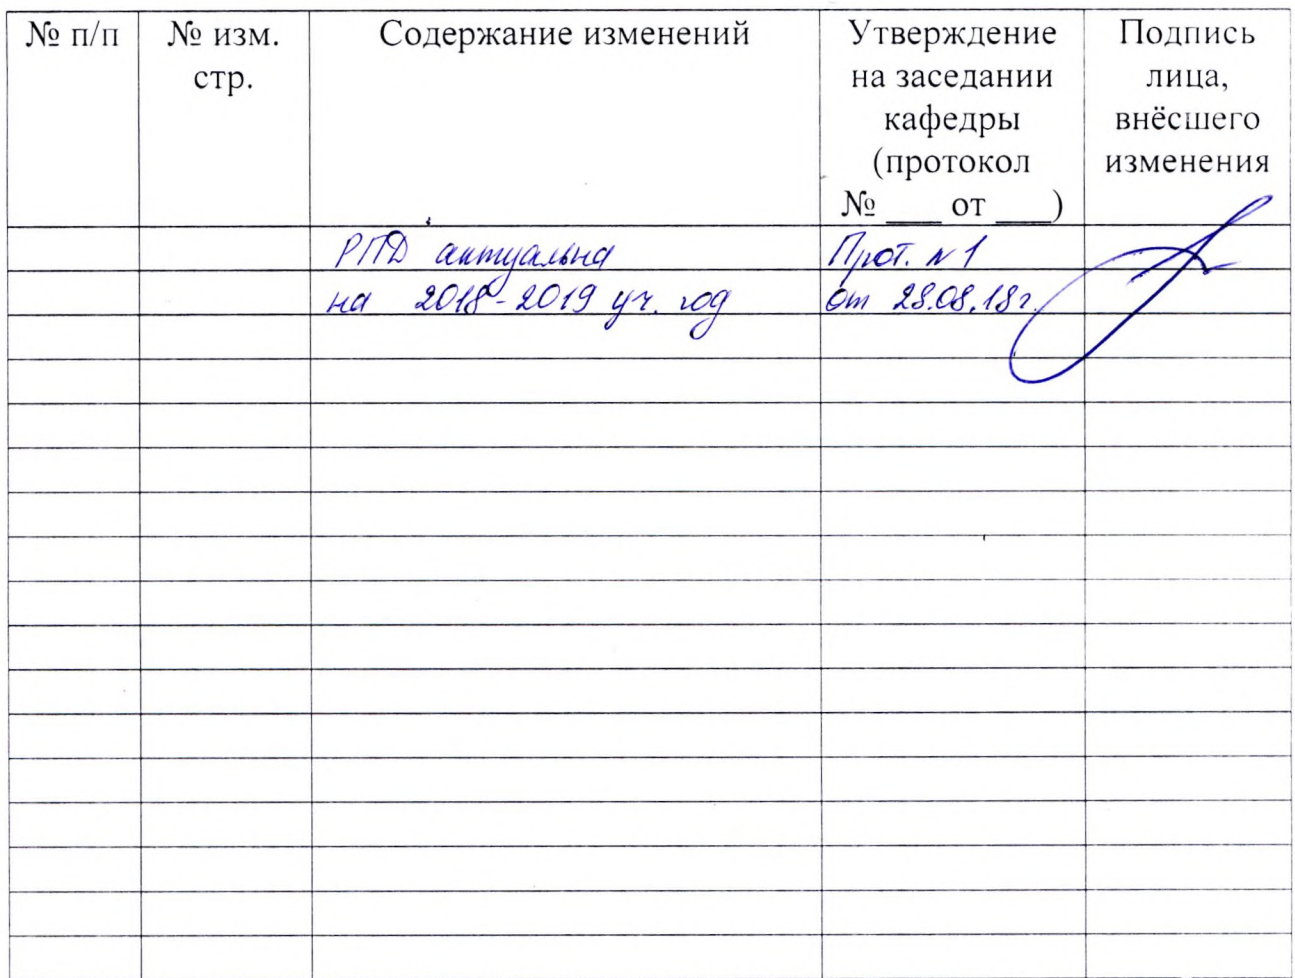 № п/п
№ изм.
стр.
Содержание изменений
Утверждение
на заседании
кафедры
(протокол
№ ____ от ____)
Подпись
лица,
внёсшего
изменения
РПД актуальна
на 2018-2019 уч. год
Прот. N 1
от 28.08.18г.